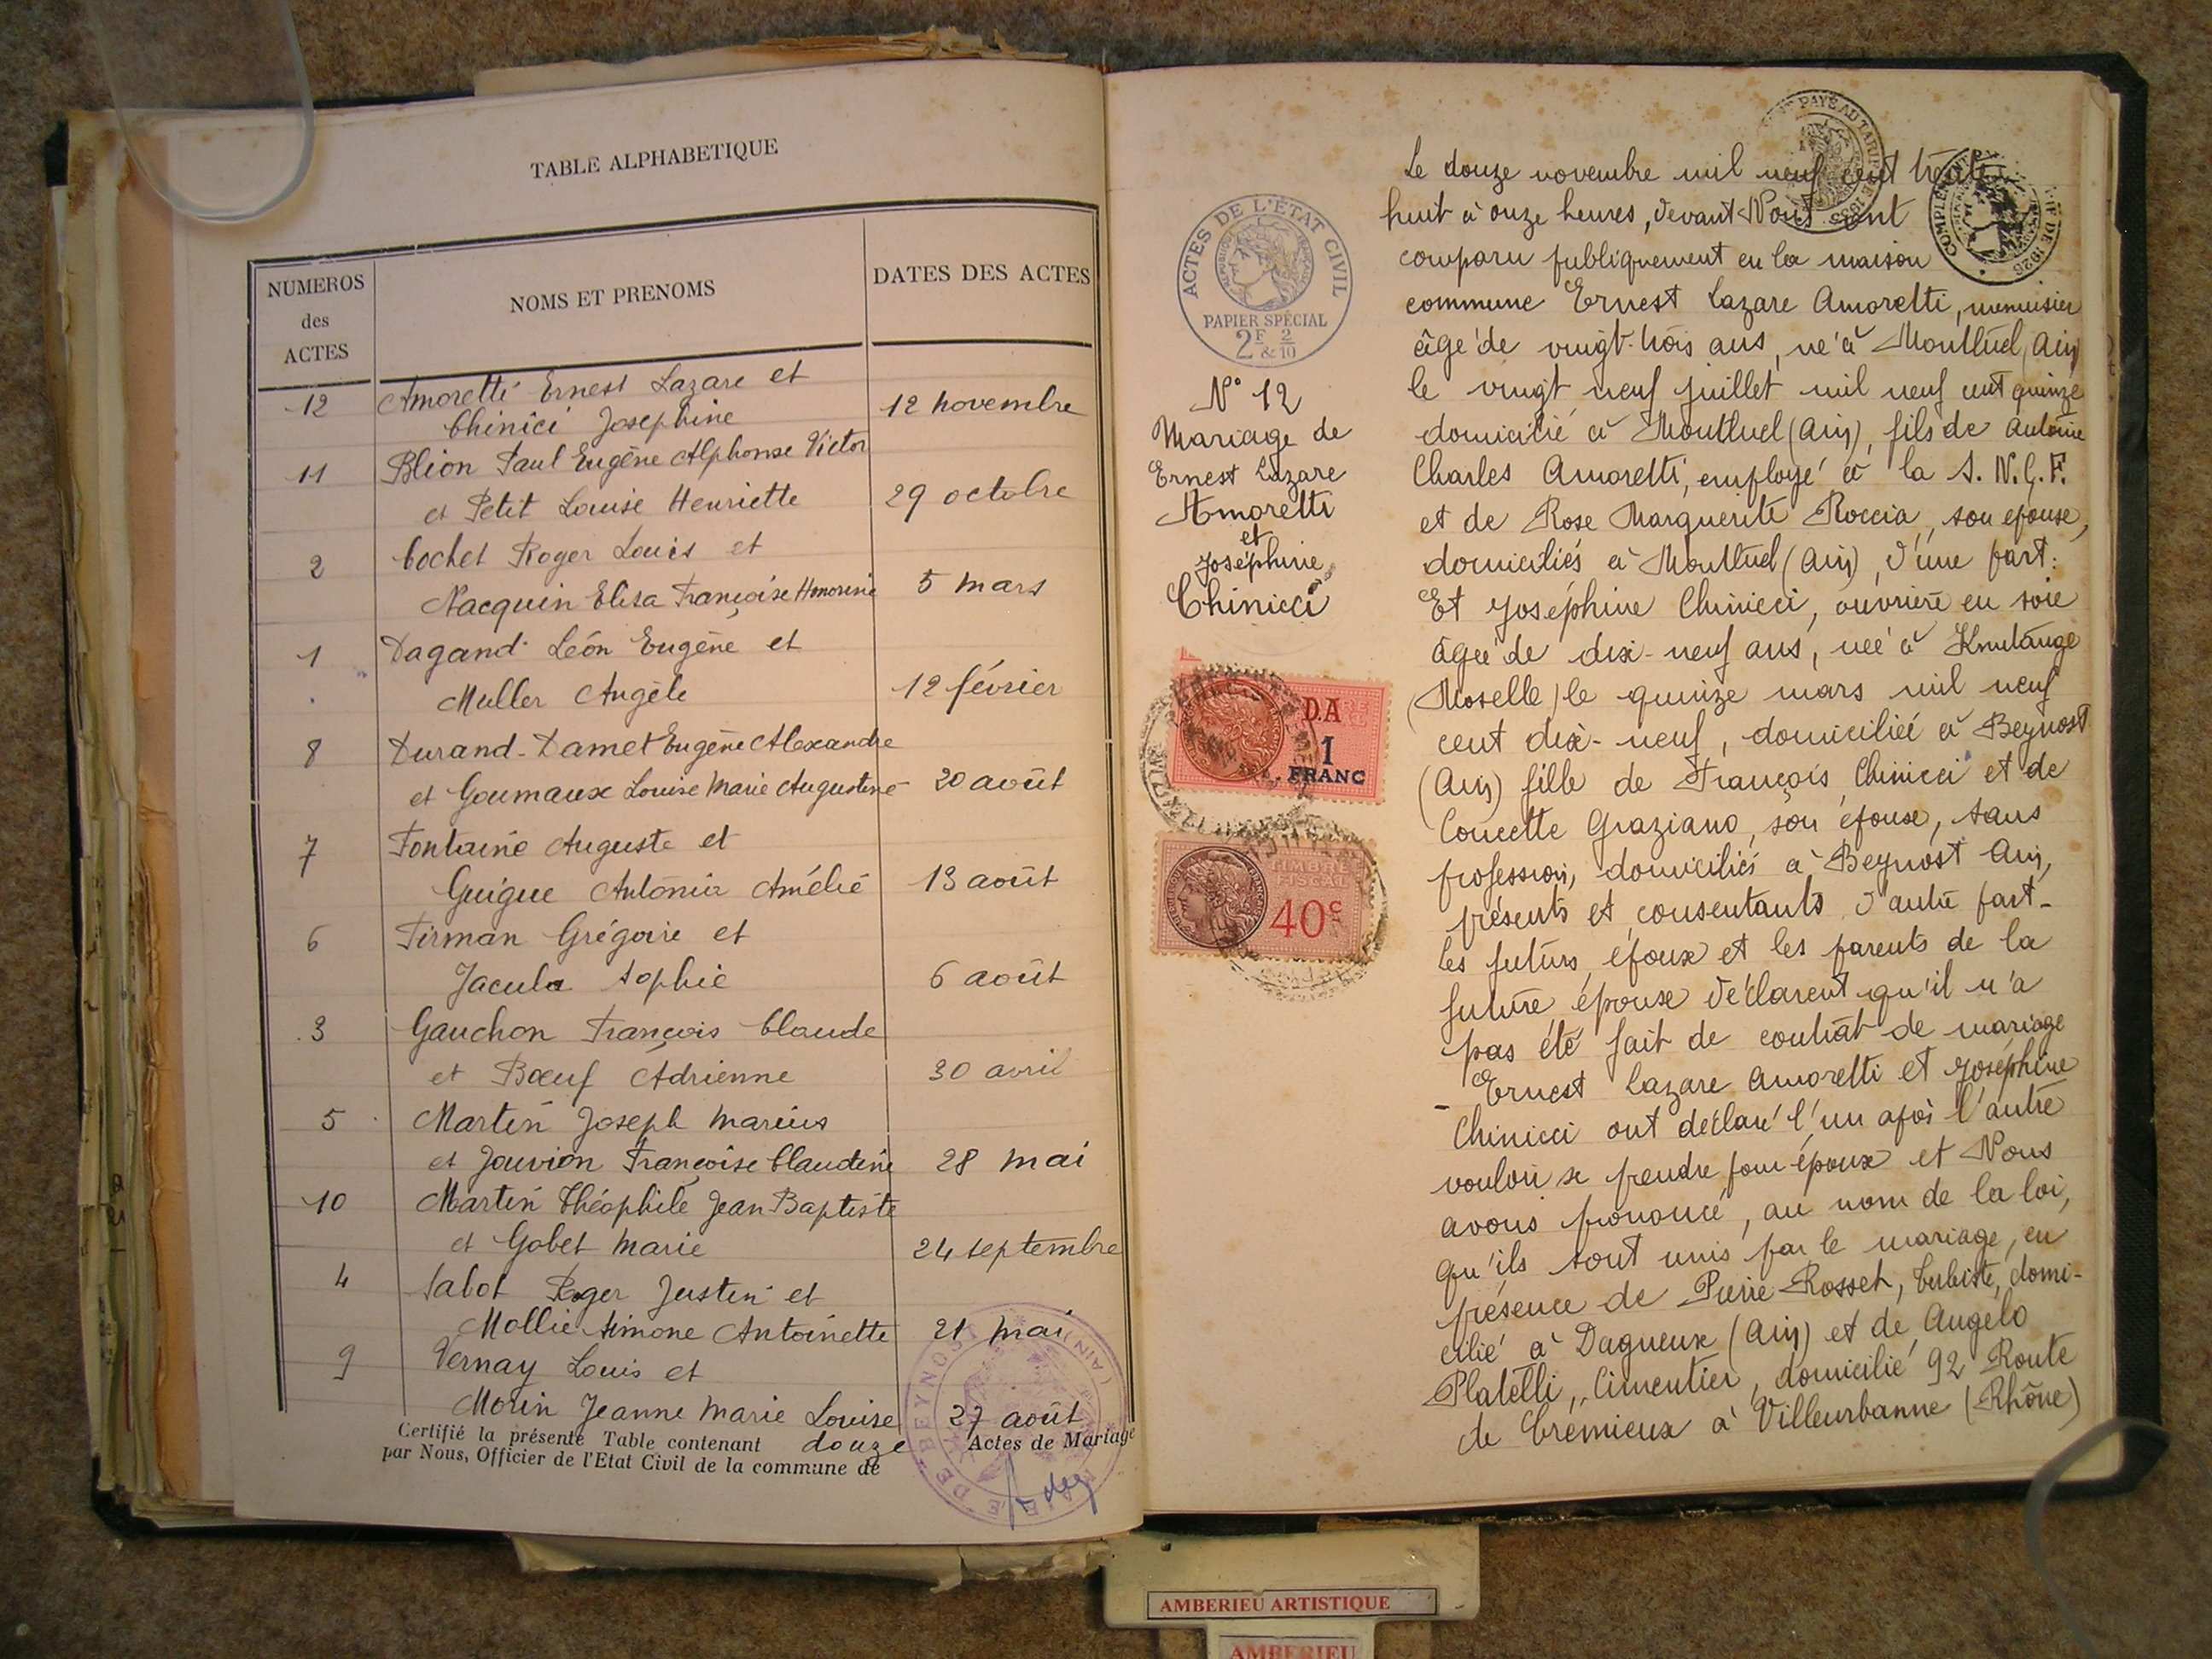 TABLE ALPHABETIQUE
NUMEROS
des
ACTES
NOMS ET PRENOMS
DATES DES ACTES
12 Amoretti Ernest Lazare et
Chinici Josephine 12 novembre
11 Blion Paul Eugène Alphonse Victor
et Petit Louise Henriette 29 octobre
2 Cochet Roger Louis et
Nacquin Elisa Françoise Honorine 5 mars
1 Dagand Léon Eugène et
Muller Angèle 12 février
8 Durand-Damet Eugène Alexandre
et Goumaux Louise Marie Augustine 20 août
7 Fontaine Auguste et
Guigue Antonia Amélie 13 août
6 Firman Grégoire et
Jacula Sophie 6 août
3 Gauchon François Claude
et Bœuf Adrienne 30 avril
5 Martin Joseph Marius
et Jouvion Françoise Claudine 28 mai
10 Martin Théophile Jean Baptiste
et Gobet Marie 24 septembre
4 Sabot Roger Justin et
Mollie Simone Antoinette 21 mai
9 Vernay Louis et
Morin Jeanne Marie Louise 27 août
Certifié la présente Table contenant douze Actes de Mariage
par Nous, Officier de l'Etat Civil de la commune de
DE BEYNOST (AIN)
ACTES DE L'ÉTAT CIVIL
PAPIER SPÉCIAL
2F & 2/10
N° 12
Mariage de
Ernest Lazare
Amoretti
et
Joséphine
Chinicci
D.A
1
FRANC
TIMBRE
40c
PAYÉ AU TARIF DE
Le douze novembre mil neuf cent trente
huit à onze heures, devant Nous sont
comparu publiquement en la maison
commune Ernest Lazare Amoretti, menuisier
âgé de vingt-trois ans, né à Montluel (Ain)
le vingt neuf juillet mil neuf cent quinze
domicilié à Montluel (Ain), fils de Antoine
Charles Amoretti, employé à la S.N.C.F.
et de Rose Marguerite Roccia, son épouse,
domiciliés à Montluel (Ain), d'une part:
Et Joséphine Chinicci, ouvrière en soie
âgée de dix-neuf ans, née à Knutange
(Moselle) le quinze mars mil neuf
cent dix-neuf, domiciliée à Beynost
(Ain) fille de François Chinicci et de
Concette Graziano, son épouse, sans
profession, domiciliés à Beynost Ain,
présents et consentants d'autre part-
Les futurs époux et les parents de la
future épouse déclarent qu'il n'a
pas été fait de contrat de mariage
- Ernest Lazare Amoretti et Joséphine
Chinicci ont déclaré l'un après l'autre
vouloir se prendre pour époux et Nous
avons prononcé, au nom de la loi,
qu'ils sont unis par le mariage, en
présence de Pierre Rosset, tubiste, domi-
cilié à Dagneux (Ain) et de Angelo
Platelli, Cimentier, domicilié 92 Route
de Crémieux à Villeurbanne (Rhône)
AMBERIEU ARTISTIQUE
AMBERIEU